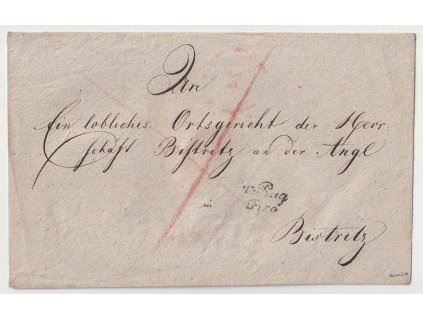 An
Ein lobliches Ortsgericht der Herr
schaft Bistritz an der Angl
v. Prag
Fr co
in
Bistritz